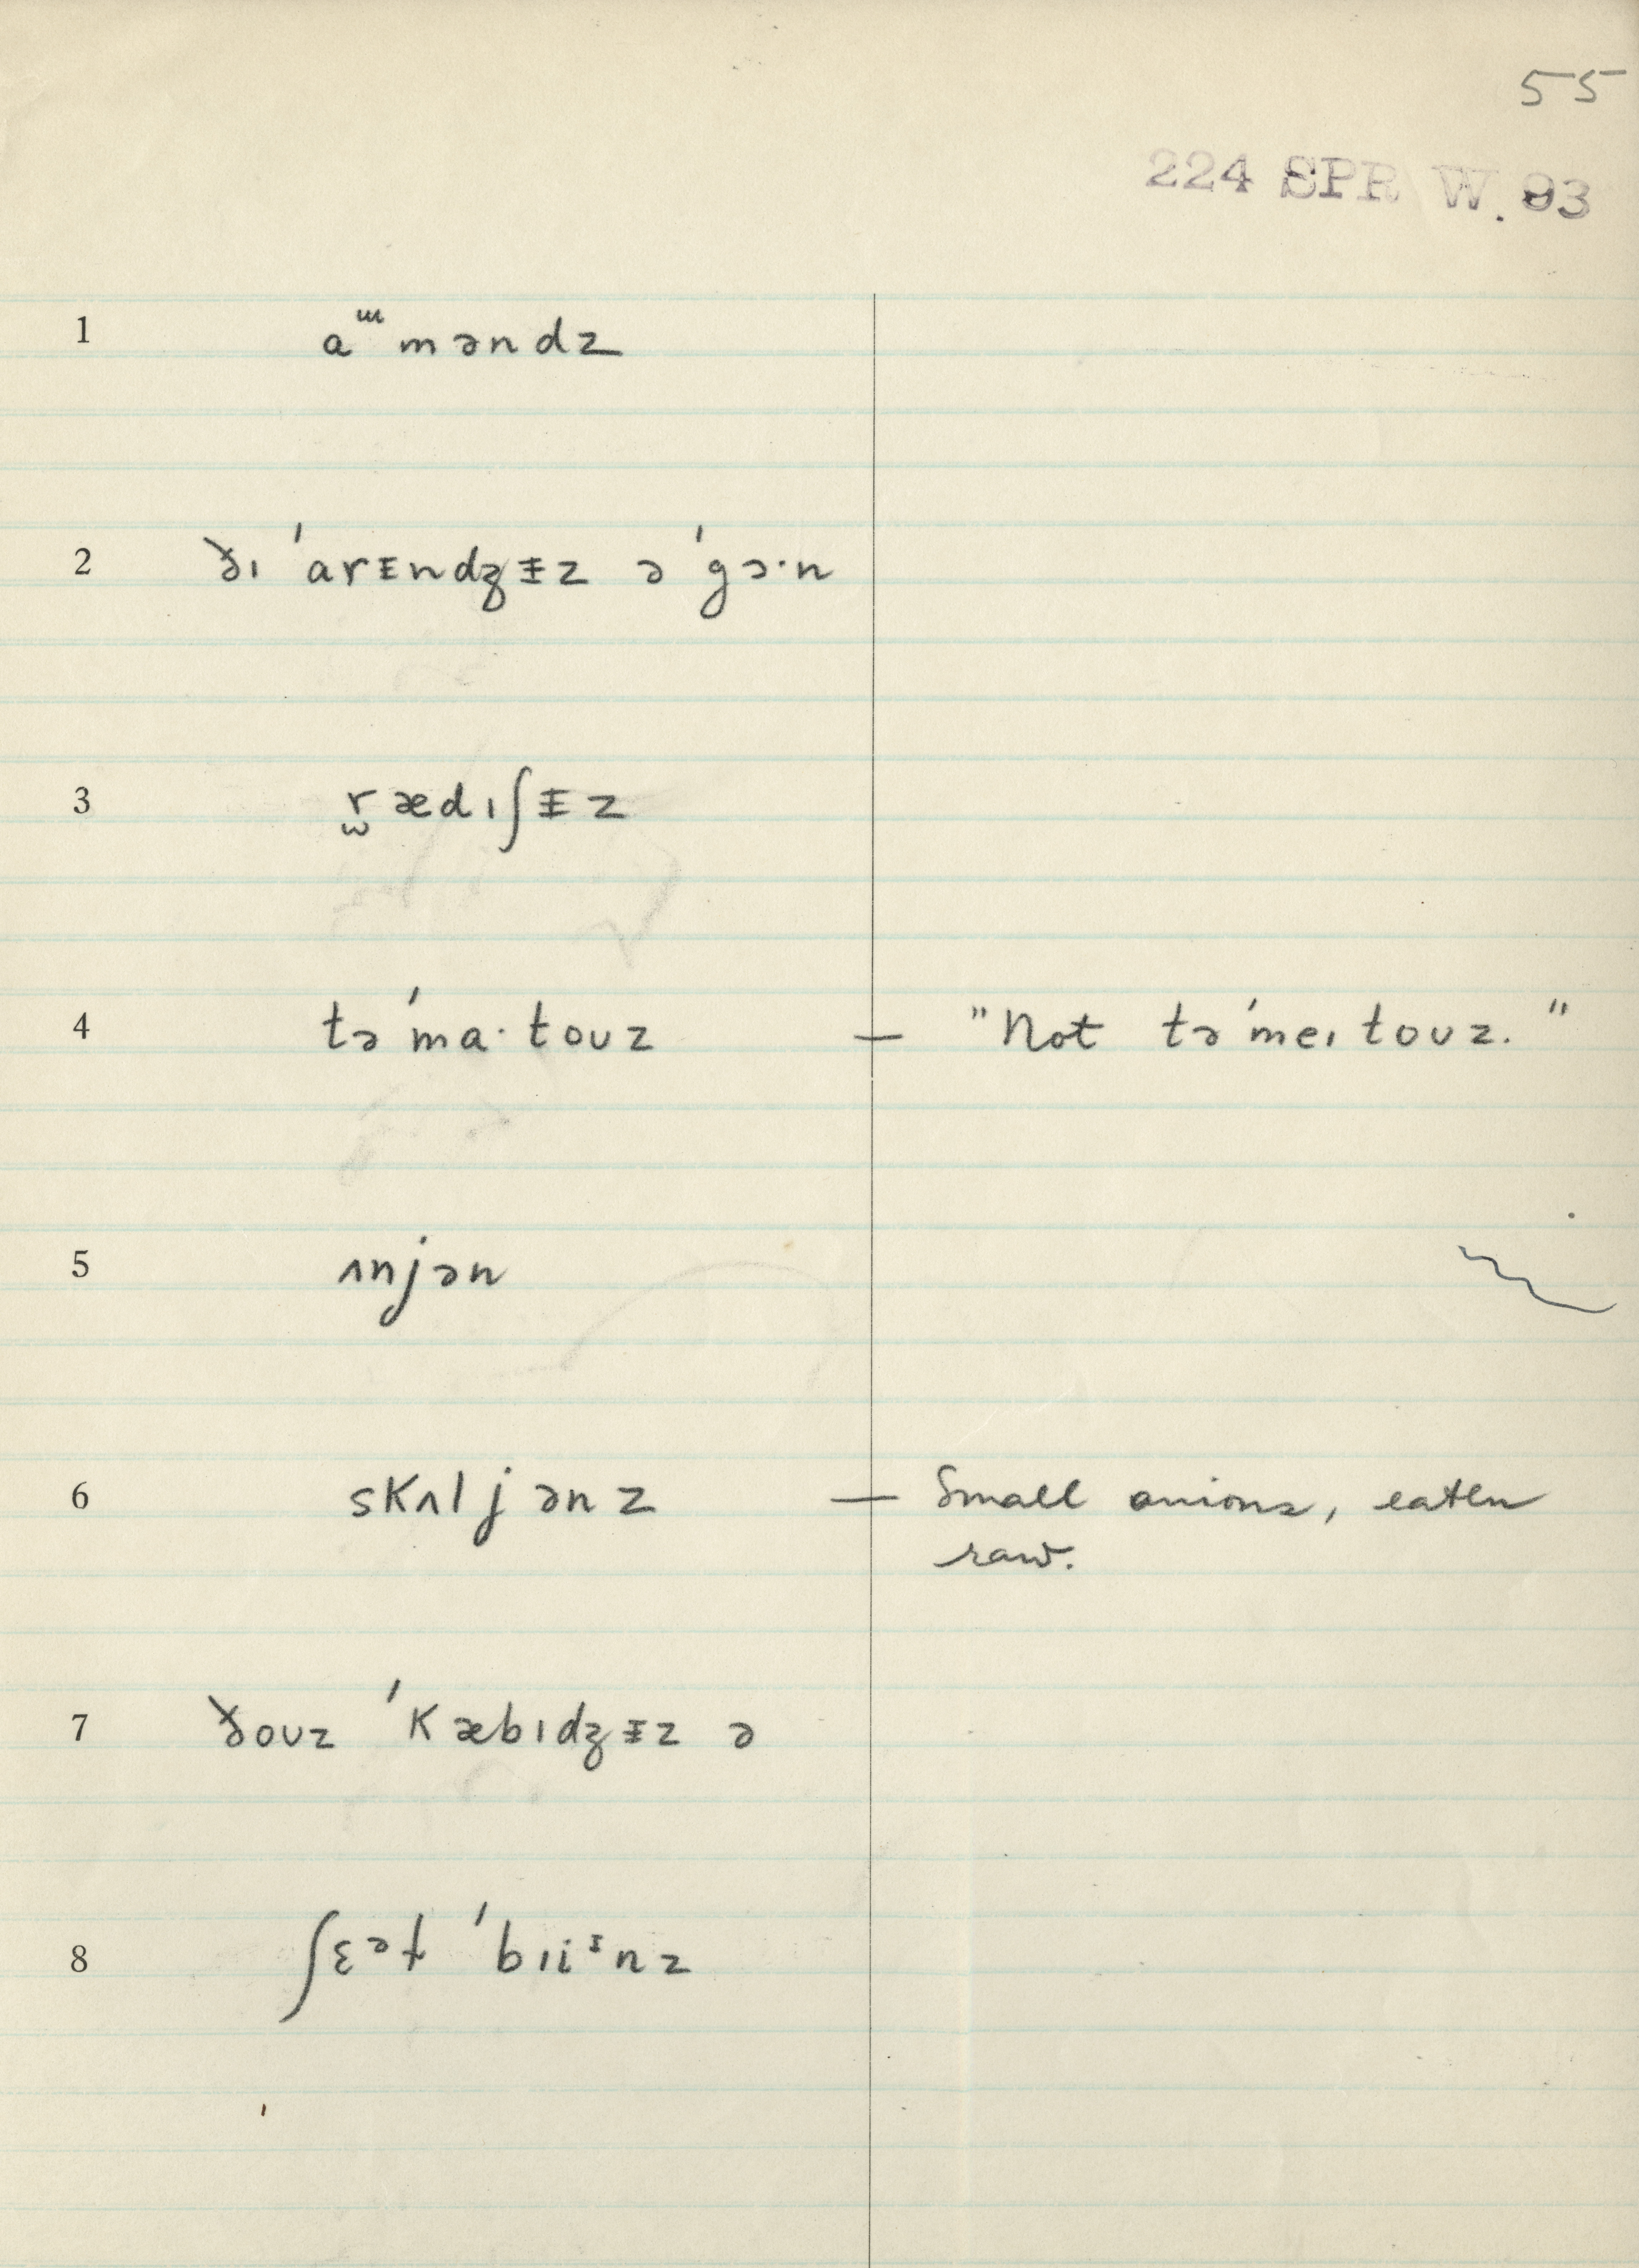 55
224 SPR W. 93
1 aᵚməndz
2 ðɪ ˈarᵻndʒᵻz əˈgɔ·n
3 r̫ædɪʃᵻz
4 təˈma·toʊz — "Not təˈmeɪtoʊz."
5 ʌnjən
6 skʌljənz — Small onions, eaten
raw.
7 ðoʊz ˈkæbɪdʒᵻz ə
8 ʃɛᵊɫ ˈbɪiᶦnz